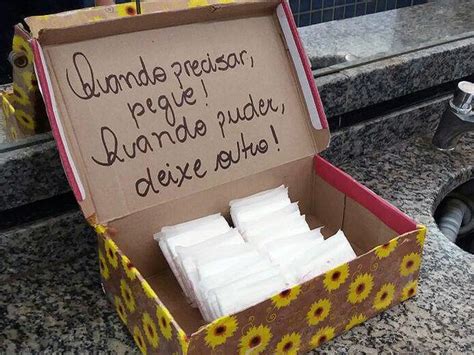 Quando precisar,
pegue!
Quando puder,
deixe outro!